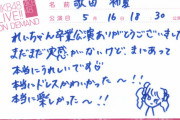 AKB48
LIVE!!
ON DEMAND
公演
5月16日18時30分
れいちゃん卒業公演ありがとうございました
まだまだ実感がないけど、まにあって
本当にうれしいですね
本当にドレスかわいかった〜!!
本当に楽しかった〜!!